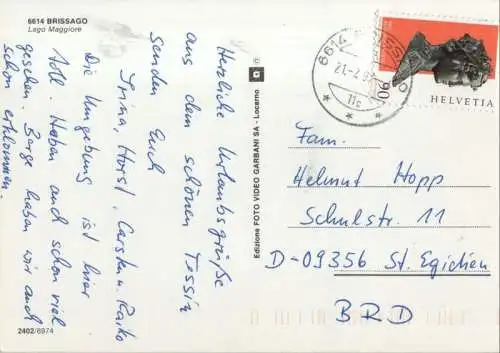 6614 BRISSAGO
Lago Maggiore
Herzliche Urlaubsgrüße
aus dem schönen Tessin
senden Euch
Irina, Horst, Carsten u. Raiko
Die Umgebung ist hier
toll. Haben auch schon viel
gesehen. Berge haben wir auch
schon erklommen.
2402/6974
Edizione FOTO VIDEO GARBANI SA - Locarno
6614
21.-2.9
11c
90
HELVETIA
Fam.
Helmut Hopp
Schulstr. 11
D-09356 St. Egidien
BRD